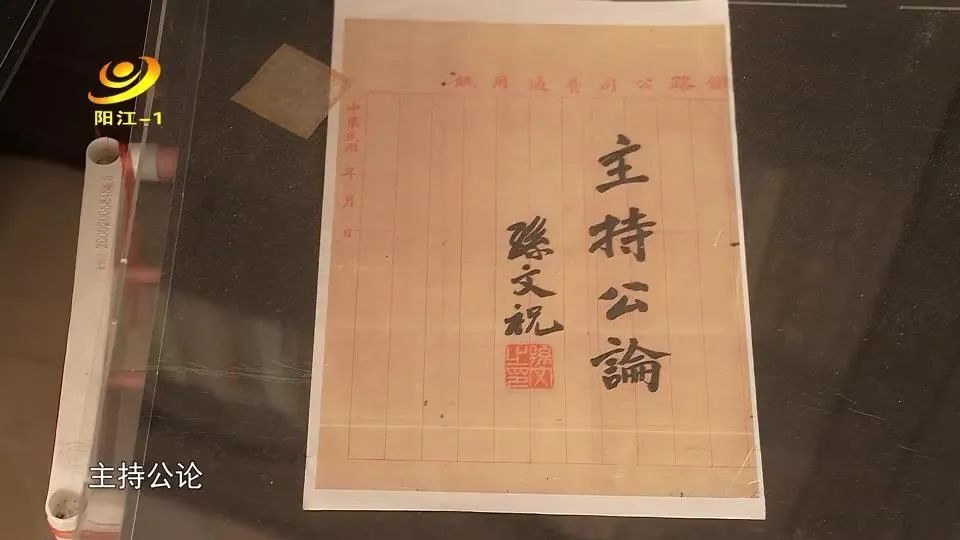 阳江-1
路公司普通用紙
中華民國 年 月 日
主持公論
孫文祝
孫文之印
主持公论